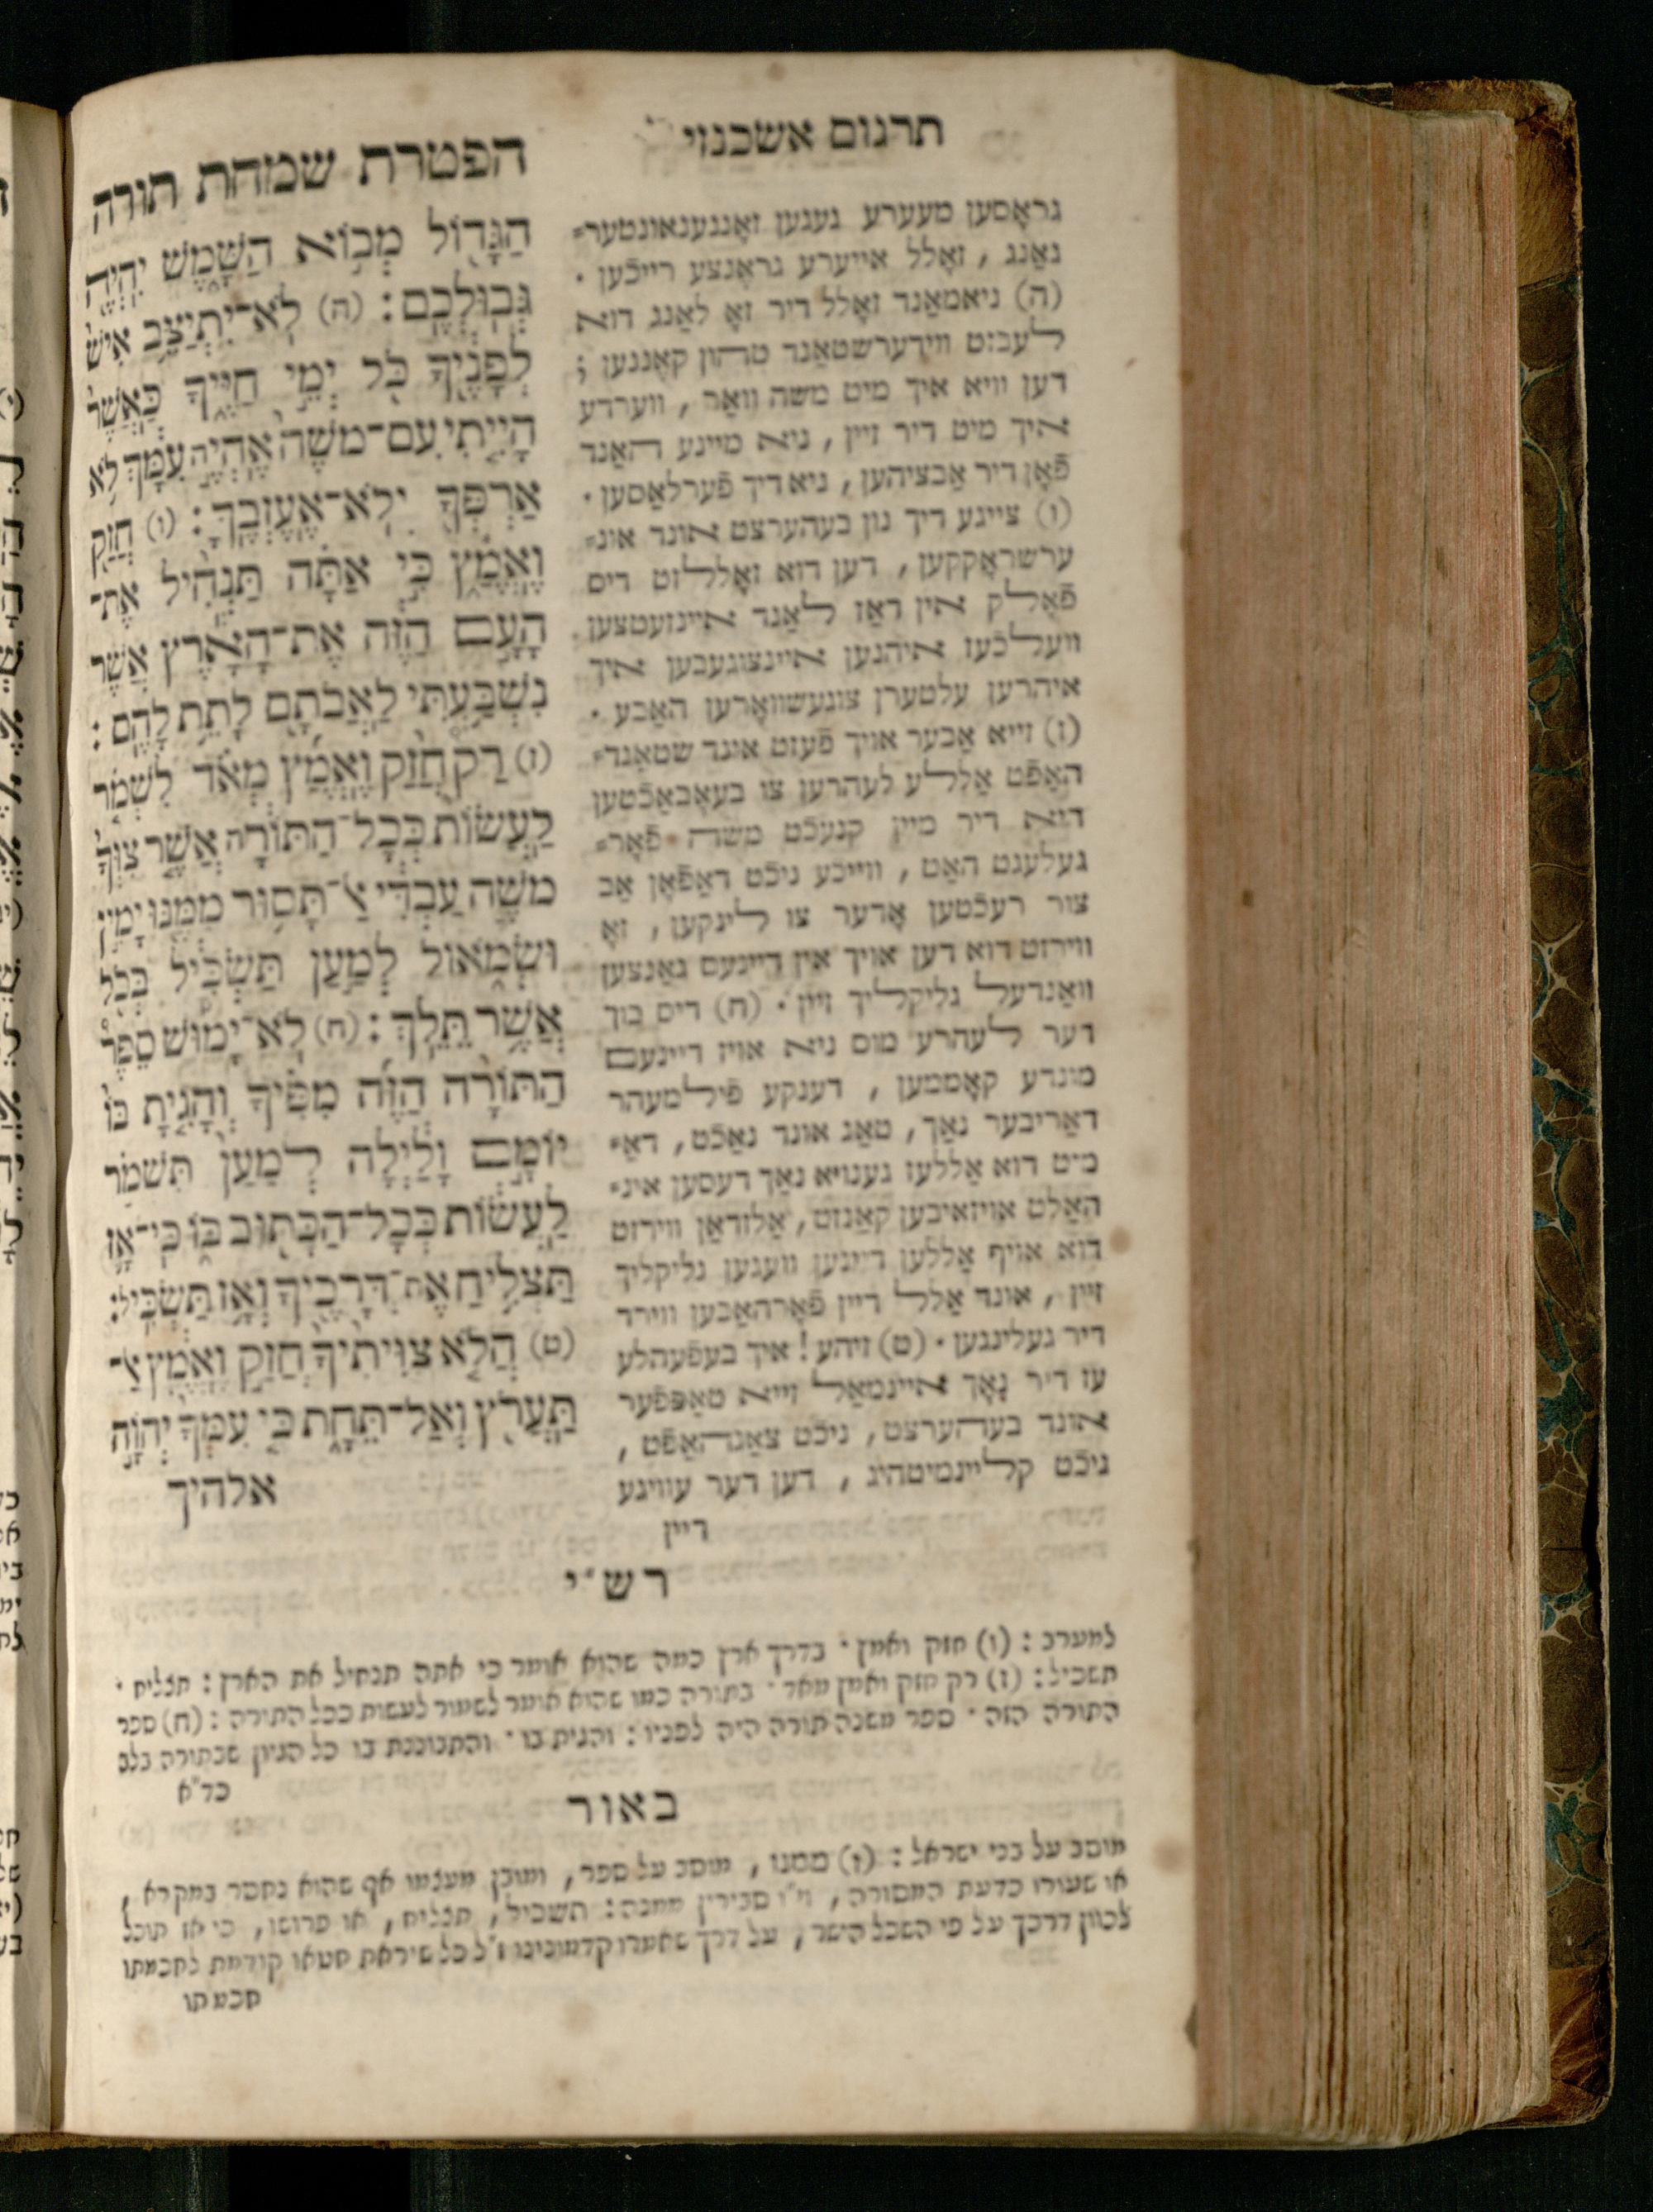 תרגום אשכנזי
גראָסען מעערע געגען זאָננענאונטער=
גאַנג, זאָלל אייערע גראֶנצע רייכֿען.
(ה) ניאמאַנד זאָלל דיר זאָ לאַנג דוא
לעבזט ווידערשטאַנד טהון קאֶננען;
דען וויא איך מיט משה וואַר, ווערדע
איך מיט דיר זיין, ניא מיינע האַנד
פֿאָן דיר אַבציהען, ניא דיך פֿערלאַסען.
(ו) צייגע דיך נון בעהערצט אונד אונ=
ערשראָקקען, דען דוא זאָללזט דיס
פֿאָלק אין דאַז לאַנד איינזעטצען
וועלכֿעז איהנען איינצוגעבען איך
איהרען עלטערן צוגעשוואָרען האַבע.
(ז) זייא אַבער אויך פֿעזט אונד שטאַנד=
האַפֿט אַללע לעהרען צו בעאָבאַכֿטען
דיא דיר מיין קנעכֿט משה פֿאָר=
געלעגט האַט, ווייכֿע ניכֿט דאַפֿאָן אַב
צור רעכֿטען אָדער צו לינקען, זאָ
ווירזט דוא דען אויך אין דיינעם גאַנצען
וואַנדעל גליקליך זיין. (ח) דיס בוך
דער לעהרע מוס ניא אויז דיינעם
מונדע קאָממען, דענקע פֿילמעהר
דאַריבער נאַך, טאַג אונד נאַכֿט, דאַ=
מיט דוא אַללעז גענויא נאַך דעסען אינ=
האַלט אויזאיבען קאַנזט, אַלזדאַן ווירזט
דוא אויף אַללען דיינען וועגען גליקליך
זיין, אונד אַלל דיין פֿאָרהאַבען ווירד
דיר געלינגען. (ט) זיהע! איך בעפֿעהלע
עז דיר נאָך איינמאַל זייא טאַפּפֿער
אונד בעהערצט, ניכֿט צאַגהאַפֿט,
ניכֿט קליינמיטהיג, דען דער עוויגע
דיין
הפטרת שמחת תורה
הַגָּד֖וֹל מְב֣וֹא הַשָּׁ֑מֶשׁ יִֽהְיֶ֖ה
גְּבֽוּלְכֶֽם׃ (ה) לֹֽא־יִתְיַצֵּ֥ב אִישׁ֙
לְפָנֶ֔יךָ כֹּ֖ל יְמֵ֣י חַיֶּ֑יךָ כַּֽאֲשֶׁ֨ר
הָיִ֤יתִי עִם־מֹשֶׁה֙ אֶֽהְיֶ֣ה עִמָּ֔ךְ לֹ֥א
אַרְפְּךָ֖ וְלֹ֥א־אֶֽעֶזְבֶֽךָּ׃ (ו) חֲזַ֖ק
וֶֽאֱמָ֑ץ כִּ֣י אַתָּ֗ה תַּנְחִיל֙ אֶת־
הָעָ֣ם הַזֶּ֔ה אֶת־הָאָ֕רֶץ אֲשֶׁר
נִשְׁבַּ֥עְתִּי לַֽאֲבֹתָ֖ם לָתֵ֥ת לָהֶֽם׃
(ז) רַק֩ חֲזַ֨ק וֶֽאֱמַ֜ץ מְאֹ֗ד לִשְׁמֹ֤ר
לַֽעֲשׂוֹת֙ כְּכָל־הַתּוֹרָ֗ה אֲשֶׁ֤ר צִוְּךָ֙
משֶׁ֣ה עַבְדִּ֔י אַל־תָּס֥וּר מִמֶּ֖נּוּ יָמִ֣ין
וּשְׂמֹ֑אול לְמַ֣עַן תַּשְׂכִּ֔יל בְּכֹ֖ל
אֲשֶׁ֥ר תֵּלֵֽךְ׃ (ח) לֹֽא־יָמ֡וּשׁ סֵ֩פֶר֩
הַתּוֹרָ֨ה הַזֶּ֜ה מִפִּ֗יךָ וְהָגִ֤יתָ בּוֹ֙
יוֹמָ֣ם וָלַ֔יְלָה לְמַ֨עַן֙ תִּשְׁמֹ֣ר
לַֽעֲשׂ֔וֹת כְּכָל־הַכָּת֖וּב בּ֑וֹ כִּי־אָ֛ז
תַּצְלִ֥יחַ אֶת־דְּרָכֶ֖ךָ וְאָ֥ז תַּשְׂכִּֽיל׃
(ט) הֲל֤וֹא צִוִּיתִ֨יךָ֙ חֲזַ֣ק וֶֽאֱמָ֔ץ אַל־
תַּֽעֲרֹ֖ץ וְאַל־תֵּחָ֑ת כִּ֤י עִמְּךָ֙ יְהוָֹ֣ה
אלהיך
רש״י
למערב: (ו) חזק ואמץ. בדרך ארץ כמה שהוא אומר כי אתה תנחיל את הארץ: תצליח.
תשכיל: (ז) רק חזק ואמץ מאד. בתורה כמו שהוא אומר לשמור לעשות ככל התורה: (ח) ספר
התורה הזה. ספר משנה תורה היה לפניו: והגית בו. והתבוננת בו כל הגיון שבתורה בלב
כד״א
באור
מוסב על בני ישראל: (ז) ממנו, מוסב על ספר, ומובן מעצמו אף שהוא נחסר במקרא,
או שעורו כדעת המסורה, וי״ו סבירין ממנה: תשכיל, תצליח, או פרושו, כי אז תוכל
לכוון דרכך על פי השכל הישר, על דרך שאמרו קדמונינו ז״ל כל שיראת חטאו קודמת לחכמתו
חכמתו